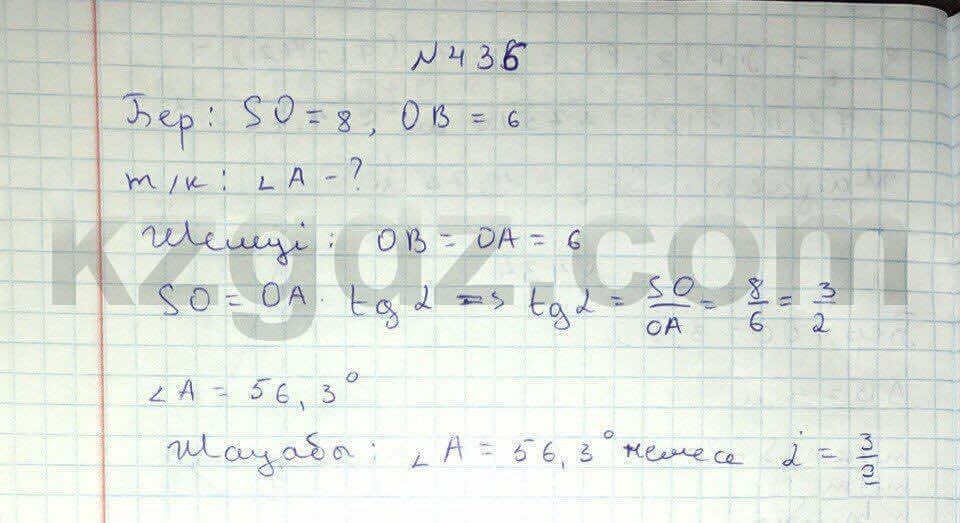 №436
Бер: SO = 8, OB = 6
т/к: ∠A - ?
Шешуі: OB = OA = 6
SO = OA · tg α => tg α = SO/OA = 8/6 = 3/2
∠A = 56,3°
Жауабы: ∠A = 56,3° немесе α = 3/2
kzgdz.com